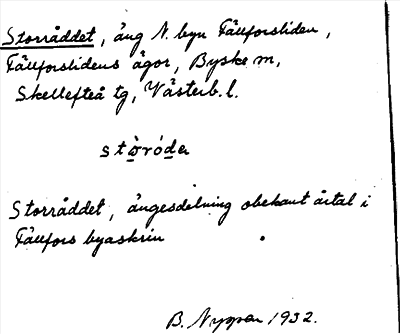 Storråddet, äng N. byn Fällforsliden,
Fällforslidens ägor, Byske m,
Skellefteå tg, Västerb. l.
Storråddet, ängesdelning obekant årtal i
Fällfors byaskrin
B. Nyppen 1932.